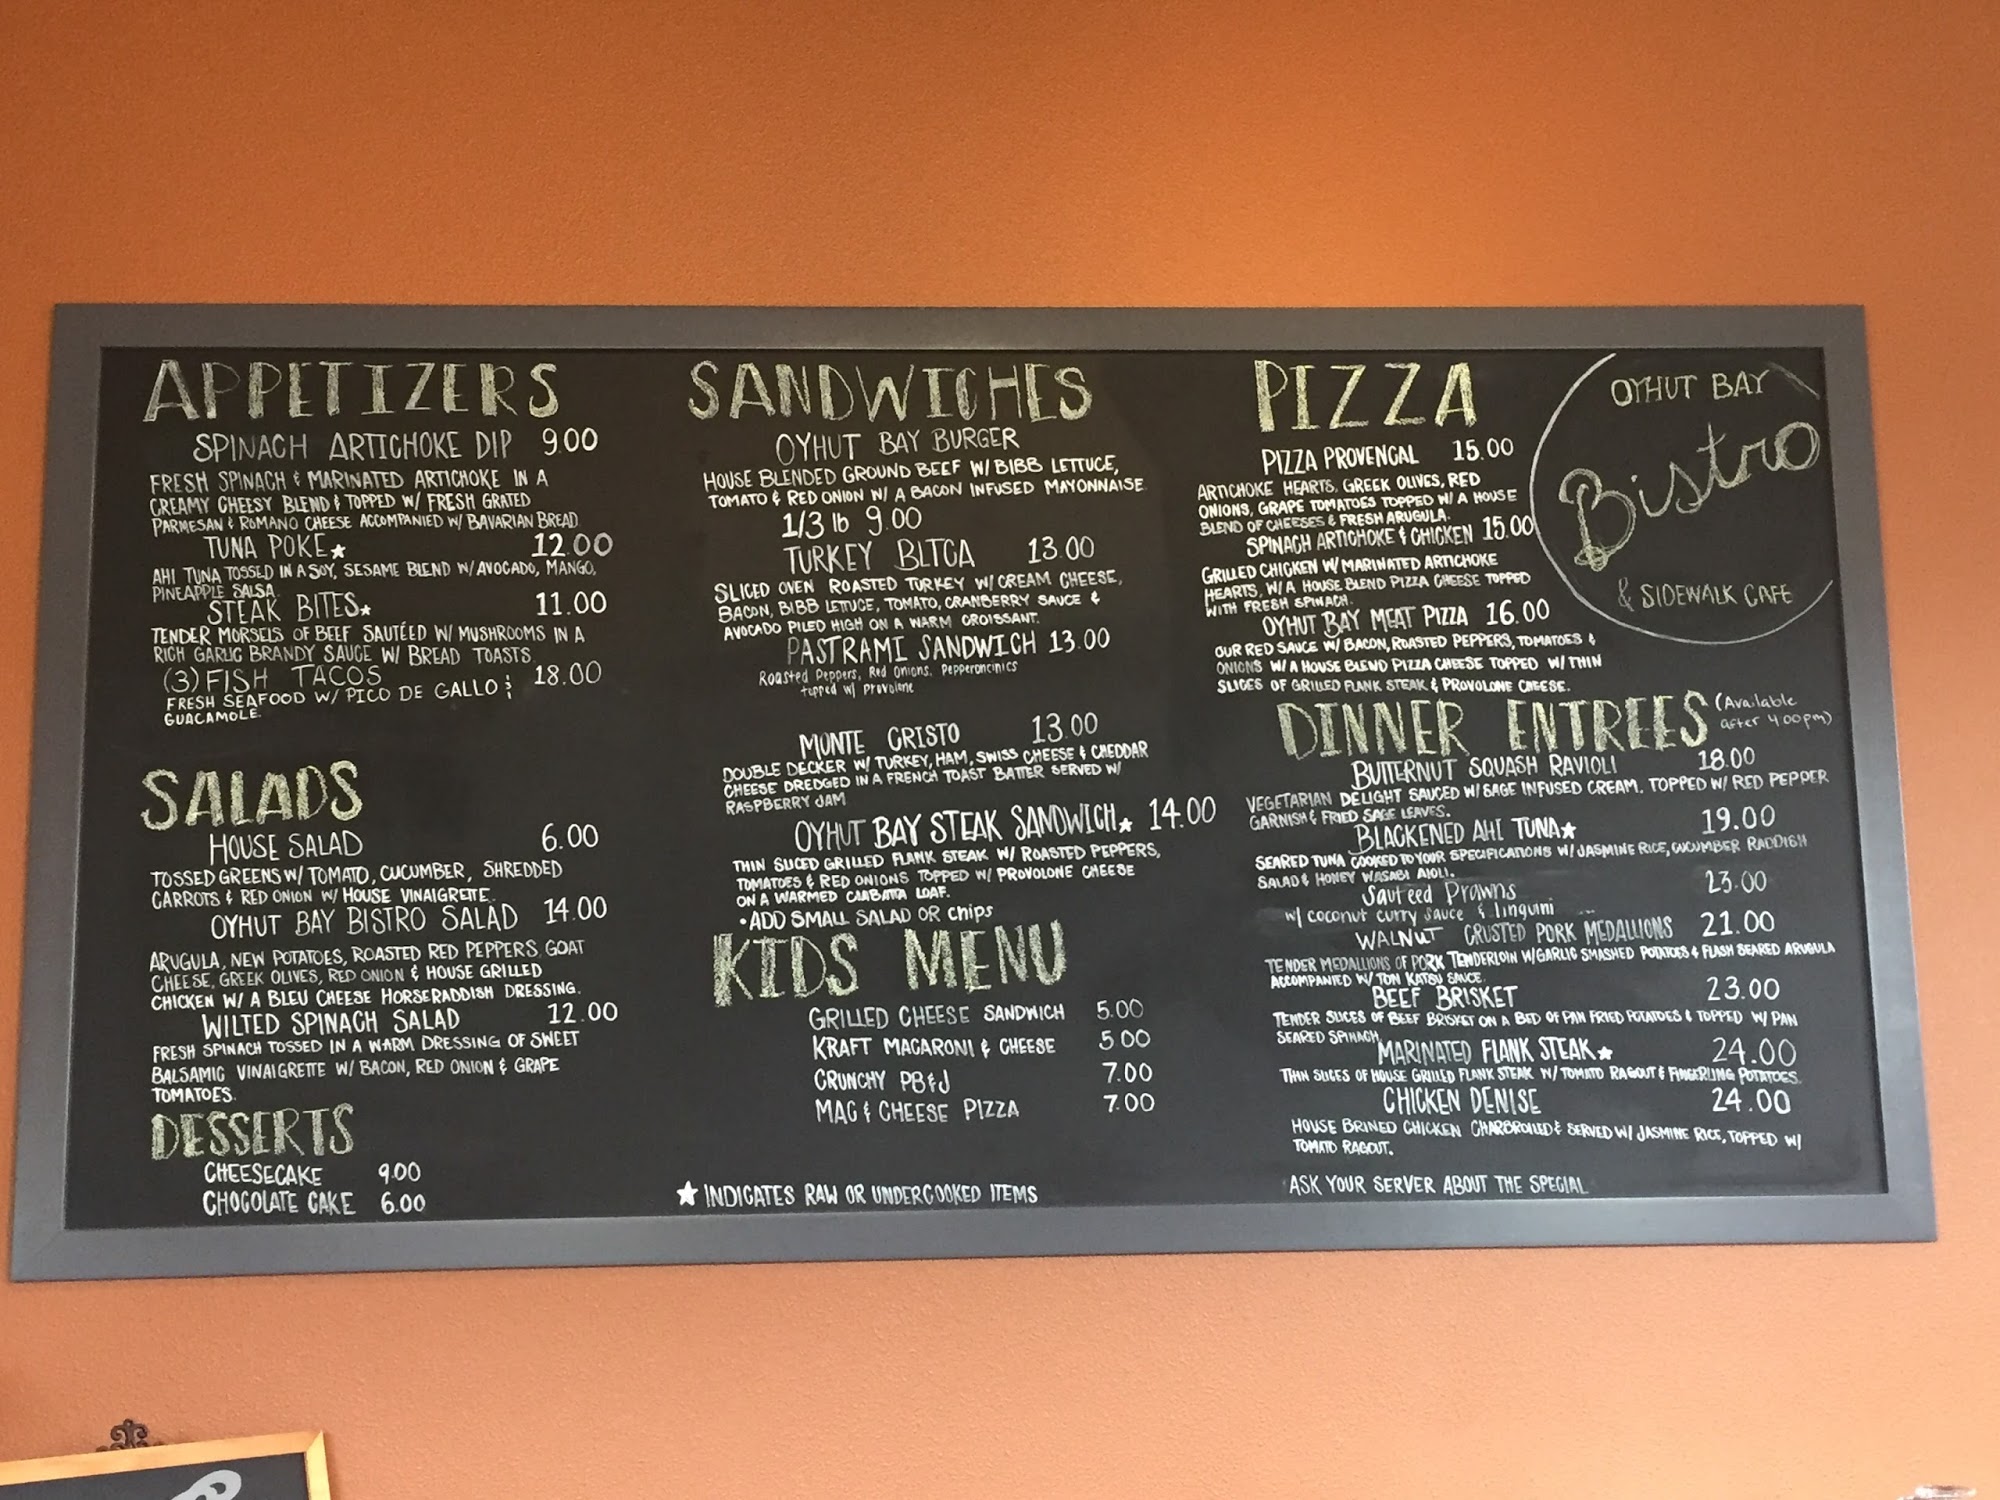 APPETIZERS
SPINACH ARTICHOKE DIP 9.00
FRESH SPINACH & MARINATED ARTICHOKE IN A
CREAMY CHEESY BLEND & TOPPED W/ FRESH GRATED
PARMESAN & ROMANO CHEESE ACCOMPANIED W/ BAVARIAN BREAD
TUNA POKE★ 12.00
AHI TUNA TOSSED IN A SOY, SESAME BLEND W/ AVOCADO, MANGO,
PINEAPPLE SALSA.
STEAK BITES★ 11.00
TENDER MORSELS OF BEEF SAUTÉED W/ MUSHROOMS IN A
RICH GARLIC BRANDY SAUCE W/ BREAD TOASTS.
(3) FISH TACOS 18.00
FRESH SEAFOOD W/ PICO DE GALLO &
GUACAMOLE.
SALADS
HOUSE SALAD 6.00
TOSSED GREENS W/ TOMATO, CUCUMBER, SHREDDED
CARROTS & RED ONION W/ HOUSE VINAIGRETTE.
OYHUT BAY BISTRO SALAD 14.00
ARUGULA, NEW POTATOES, ROASTED RED PEPPERS, GOAT
CHEESE, GREEK OLIVES, RED ONION & HOUSE GRILLED
CHICKEN W/ A BLEU CHEESE HORSERADDISH DRESSING.
WILTED SPINACH SALAD 12.00
FRESH SPINACH TOSSED IN A WARM DRESSING OF SWEET
BALSAMIC VINAIGRETTE W/ BACON, RED ONION & GRAPE
TOMATOES.
DESSERTS
CHEESECAKE 9.00
CHOCOLATE CAKE 6.00
SANDWICHES
OYHUT BAY BURGER
HOUSE BLENDED GROUND BEEF W/ BIBB LETTUCE,
TOMATO & RED ONION W/ A BACON INFUSED MAYONNAISE
1/3 lb 9.00
TURKEY BLTCA 13.00
SLICED OVEN ROASTED TURKEY W/ CREAM CHEESE,
BACON, BIBB LETTUCE, TOMATO, CRANBERRY SAUCE &
AVOCADO PILED HIGH ON A WARM CROISSANT.
PASTRAMI SANDWICH 13.00
Roasted Peppers, Red Onions, Pepperoncinics
topped w/ Provolone
MONTE CRISTO 13.00
DOUBLE DECKER W/ TURKEY, HAM, SWISS CHEESE & CHEDDAR
CHEESE DREDGED IN A FRENCH TOAST BATTER SERVED W/
RASPBERRY JAM
OYHUT BAY STEAK SANDWICH★ 14.00
THIN SLICED GRILLED FLANK STEAK W/ ROASTED PEPPERS,
TOMATOES & RED ONIONS TOPPED W/ PROVOLONE CHEESE
ON A WARMED CIABATTA LOAF.
• ADD SMALL SALAD OR chips
KIDS MENU
GRILLED CHEESE SANDWICH 5.00
KRAFT MACARONI & CHEESE 5.00
CRUNCHY PB&J 7.00
MAC & CHEESE PIZZA 7.00
★ INDICATES RAW OR UNDERCOOKED ITEMS
PIZZA
PIZZA PROVENCAL 15.00
ARTICHOKE HEARTS, GREEK OLIVES, RED
ONIONS, GRAPE TOMATOES TOPPED W/ A HOUSE
BLEND OF CHEESES & FRESH ARUGULA.
SPINACH ARTICHOKE & CHICKEN 15.00
GRILLED CHICKEN W/ MARINATED ARTICHOKE
HEARTS, W/ A HOUSE BLEND PIZZA CHEESE TOPPED
WITH FRESH SPINACH.
OYHUT BAY MEAT PIZZA 16.00
OUR RED SAUCE W/ BACON, ROASTED PEPPERS, TOMATOES &
ONIONS W/ A HOUSE BLEND PIZZA CHEESE TOPPED W/ THIN
SLICES OF GRILLED FLANK STEAK & PROVOLONE CHEESE.
OYHUT BAY
Bistro
& SIDEWALK CAFE
DINNER ENTREES (Available
after 4:00pm)
BUTTERNUT SQUASH RAVIOLI 18.00
VEGETARIAN DELIGHT SAUCED W/ SAGE INFUSED CREAM. TOPPED W/ RED PEPPER
GARNISH & FRIED SAGE LEAVES.
BLACKENED AHI TUNA★ 19.00
SEARED TUNA COOKED TO YOUR SPECIFICATIONS W/ JASMINE RICE, CUCUMBER RADDISH
SALAD & HONEY WASABI AIOLI.
Sauteed Prawns 23.00
w/ coconut curry sauce & linguini
WALNUT CRUSTED PORK MEDALLIONS 21.00
TENDER MEDALLIONS OF PORK TENDERLOIN W/ GARLIC SMASHED POTATOES & FLASH SEARED ARUGULA
ACCOMPANIED W/ TON KATSU SAUCE.
BEEF BRISKET 23.00
TENDER SLICES OF BEEF BRISKET ON A BED OF PAN FRIED POTATOES & TOPPED W/ PAN
SEARED SPINACH.
MARINATED FLANK STEAK★ 24.00
THIN SLICES OF HOUSE GRILLED FLANK STEAK W/ TOMATO RAGOUT & FINGERLING POTATOES.
CHICKEN DENISE 24.00
HOUSE BRINED CHICKEN CHARBROILED & SERVED W/ JASMINE RICE, TOPPED W/
TOMATO RAGOUT.
ASK YOUR SERVER ABOUT THE SPECIAL